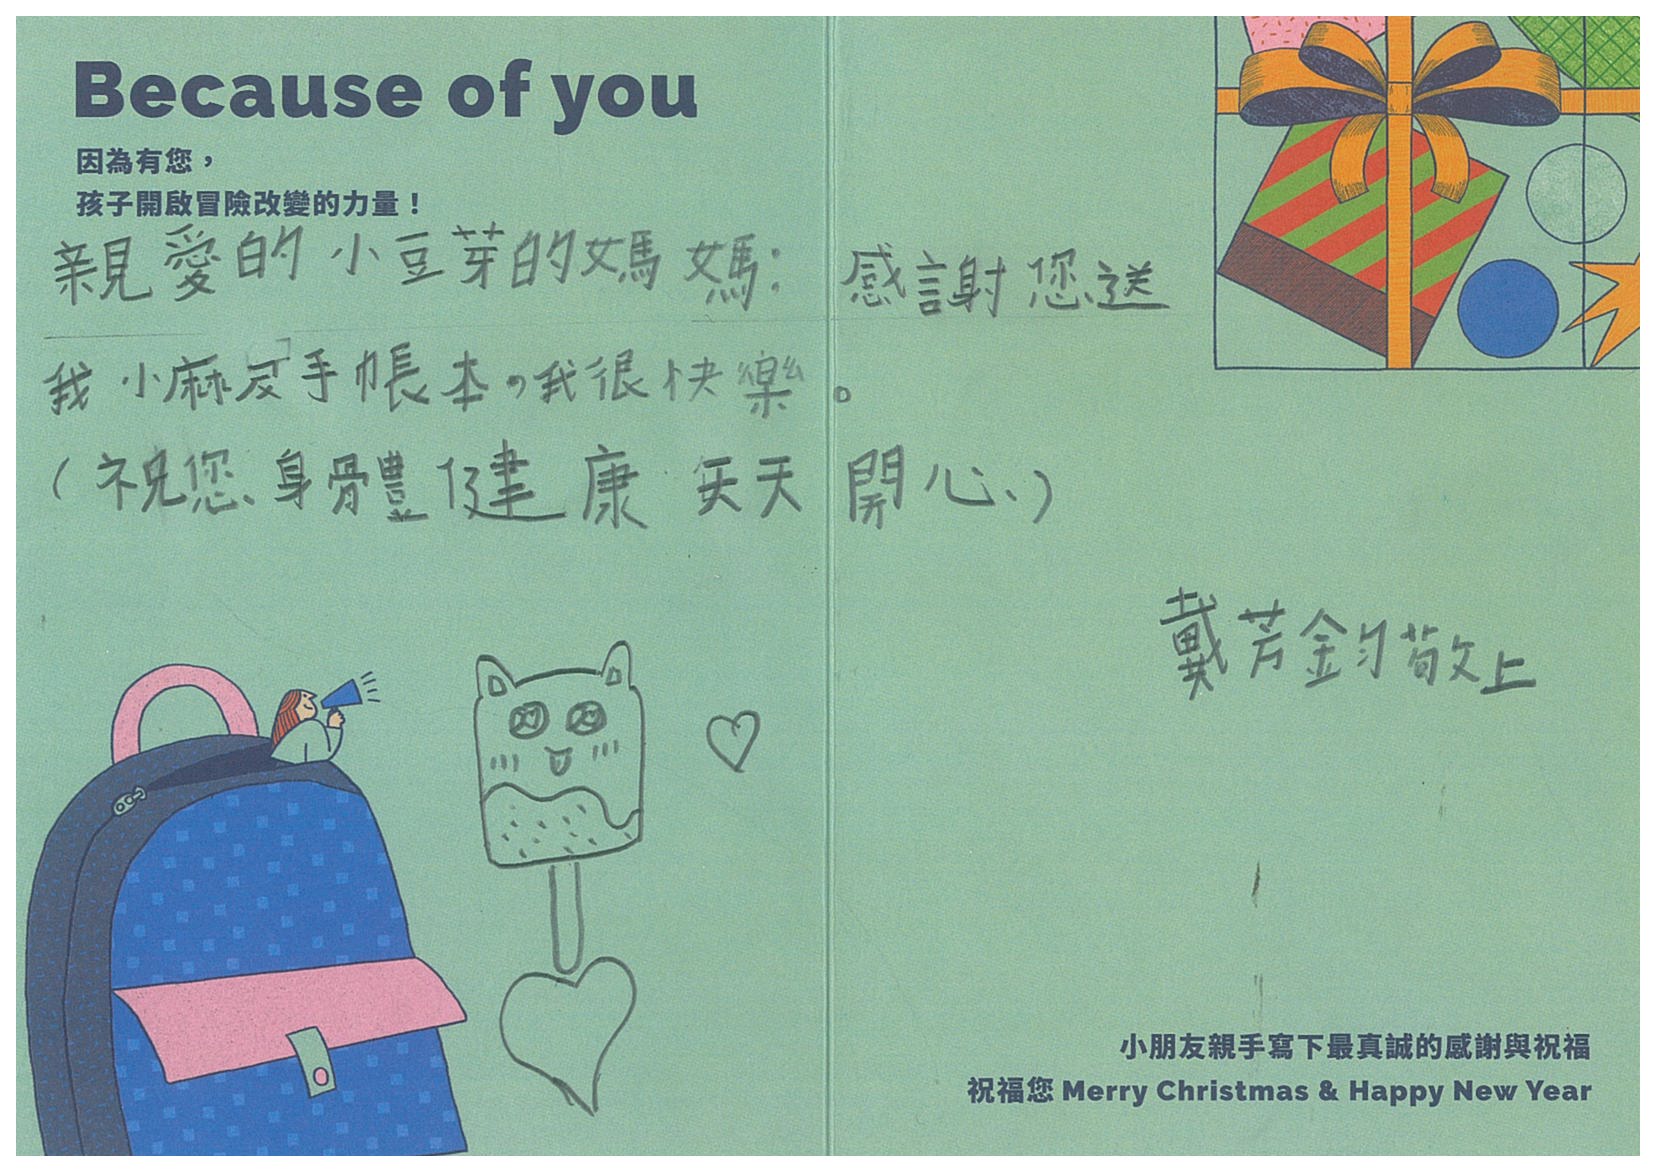 Because of you
因為有您，
孩子開啟冒險改變的力量！
親愛的小豆芽的媽媽：感謝您送
我小麻皮手帳本，我很快樂。
（祝您身體健康天天開心）
戴芳鈞敬上
小朋友親手寫下最真誠的感謝與祝福
祝福您 Merry Christmas & Happy New Year